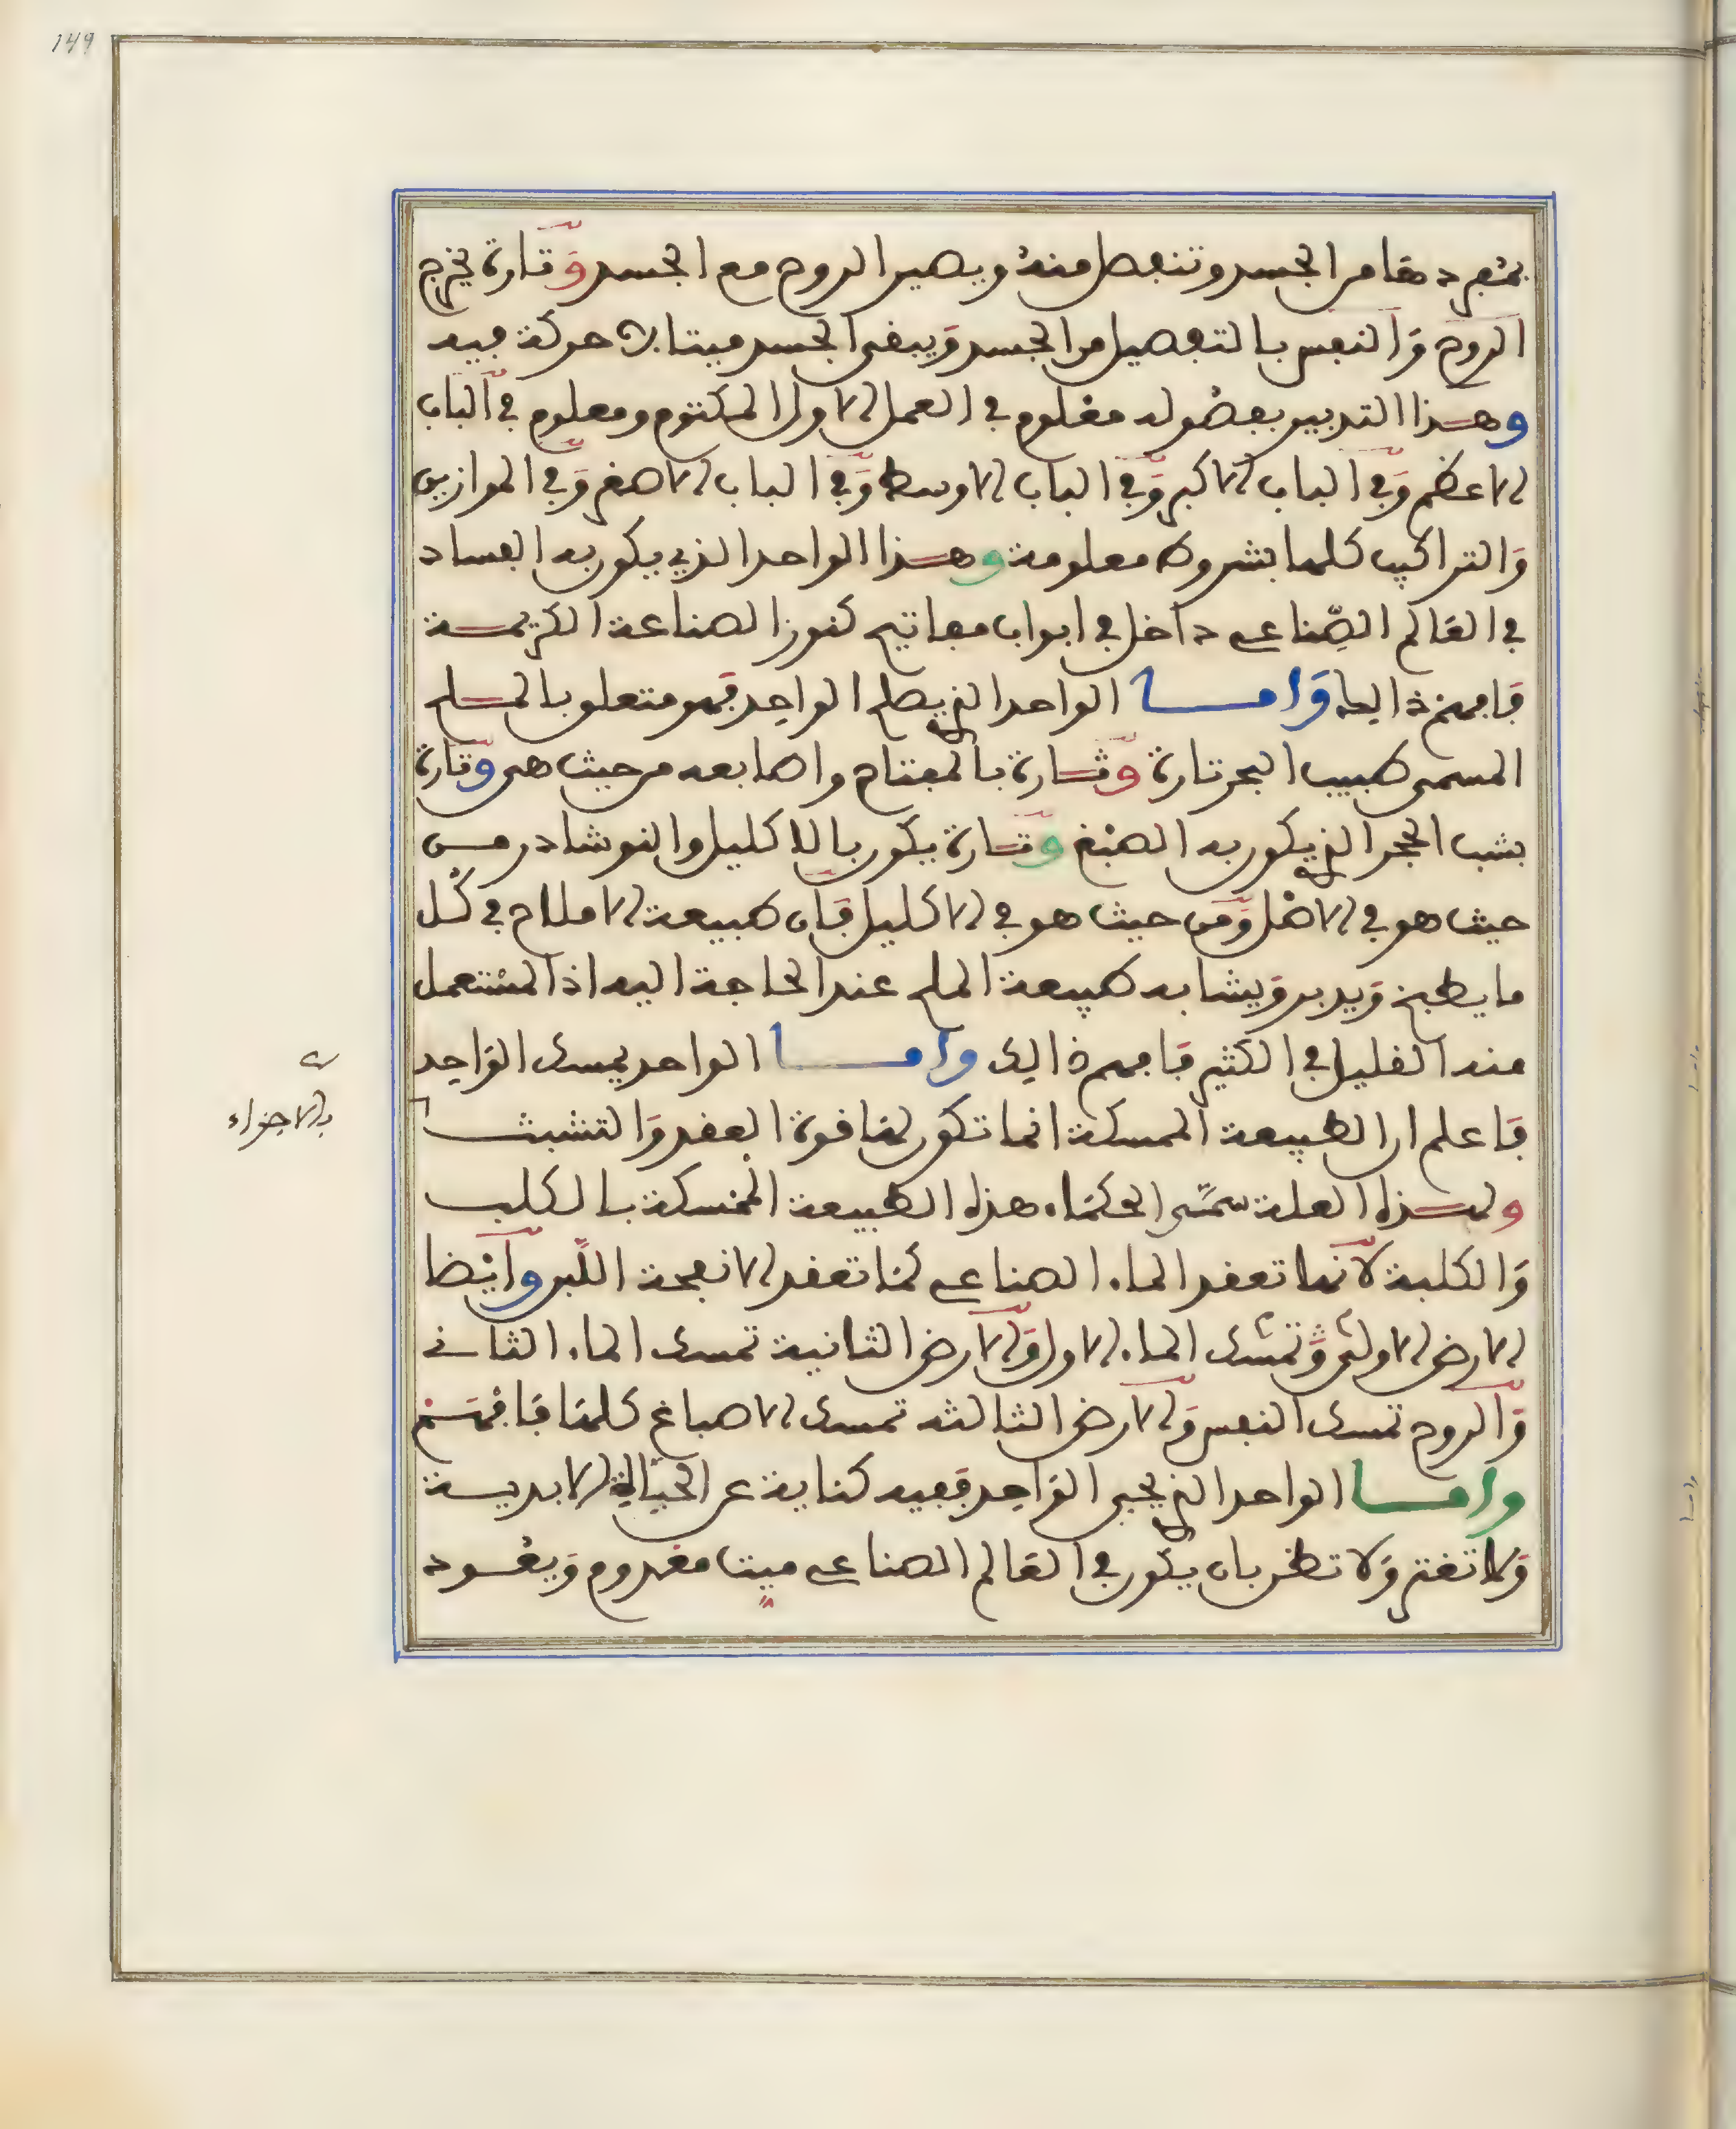 149
بمفردها من الجسد وتنفصل منه ويصير الروح مع الجسد وَتارة يخرج
الروح وَالنفس بالتفصيل من الجسد وَيبقى الجسد ميتا لا حركة فيه
وهذا التدبير بفصوله معلوم في العمل الاول المكتوم ومعلوم في الباب
الاعظم وَفي الباب الاكبر وَفي الباب الاوسط وَفي الباب الاصغر وَفي الموازين
وَالتراكيب كلها بشروط معلومة وهذا الواحد الذي يكون به الفساد
في العالم الصِّناعي داخل في ابواب مفاتيح كنوز الصناعة الكريمة
فافهم ذالك وَاما الواحد الذي يصلح الواحِد فهو متعلق بالملح
المسمى طبيب الحجر تارة وَتارة بالمفتاح واصابعه من حيث هي وَتارة
بشب الحجر الذي يكون به الصبغ وَتارة يكون بالاكليل والنوشادر من
حيث هو في الاصل وَمن حيث هو في الاكليل فان طبيعة الاملاح في كل
ما يطبخ وَيدبر وَيشابه طبيعة الملح عند الحاجة اليه اذ المستعمل
منه القليل في الكثير فافهم ذالك واما الواحد يمسك الوَاحِد
فاعلم ان الطبيعة الممسكة انما تكون لها قوة العقد وَالتشبث
بالاجزاء
ولهذه العلة سمَّى الحكماء هذه الطبيعة الممسكة بالكلب
وَالكلبة لأنها تعقد الماء الصناعي كما تعقد الانفحة اللَّبن وأيْضا
الارض الاولى وَتمسك الماء الاول وَالارض الثانية تمسك الماء الثاني
وَالروح تمسك النفس وَالارض الثالثه تمسك الاصباغ كلها فافهَم
واما الواحد الذي يحيي الوَاحِد ففيه كناية عن الحياة الابدية
وَلا تغتر وَلا تظن بان يكون في العالم الصناعي ميت معدوم وَيعود